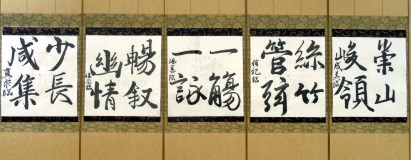 崇山
峻領
絲竹
管弦
一觴
一詠
暢叙
幽情
少長
咸集